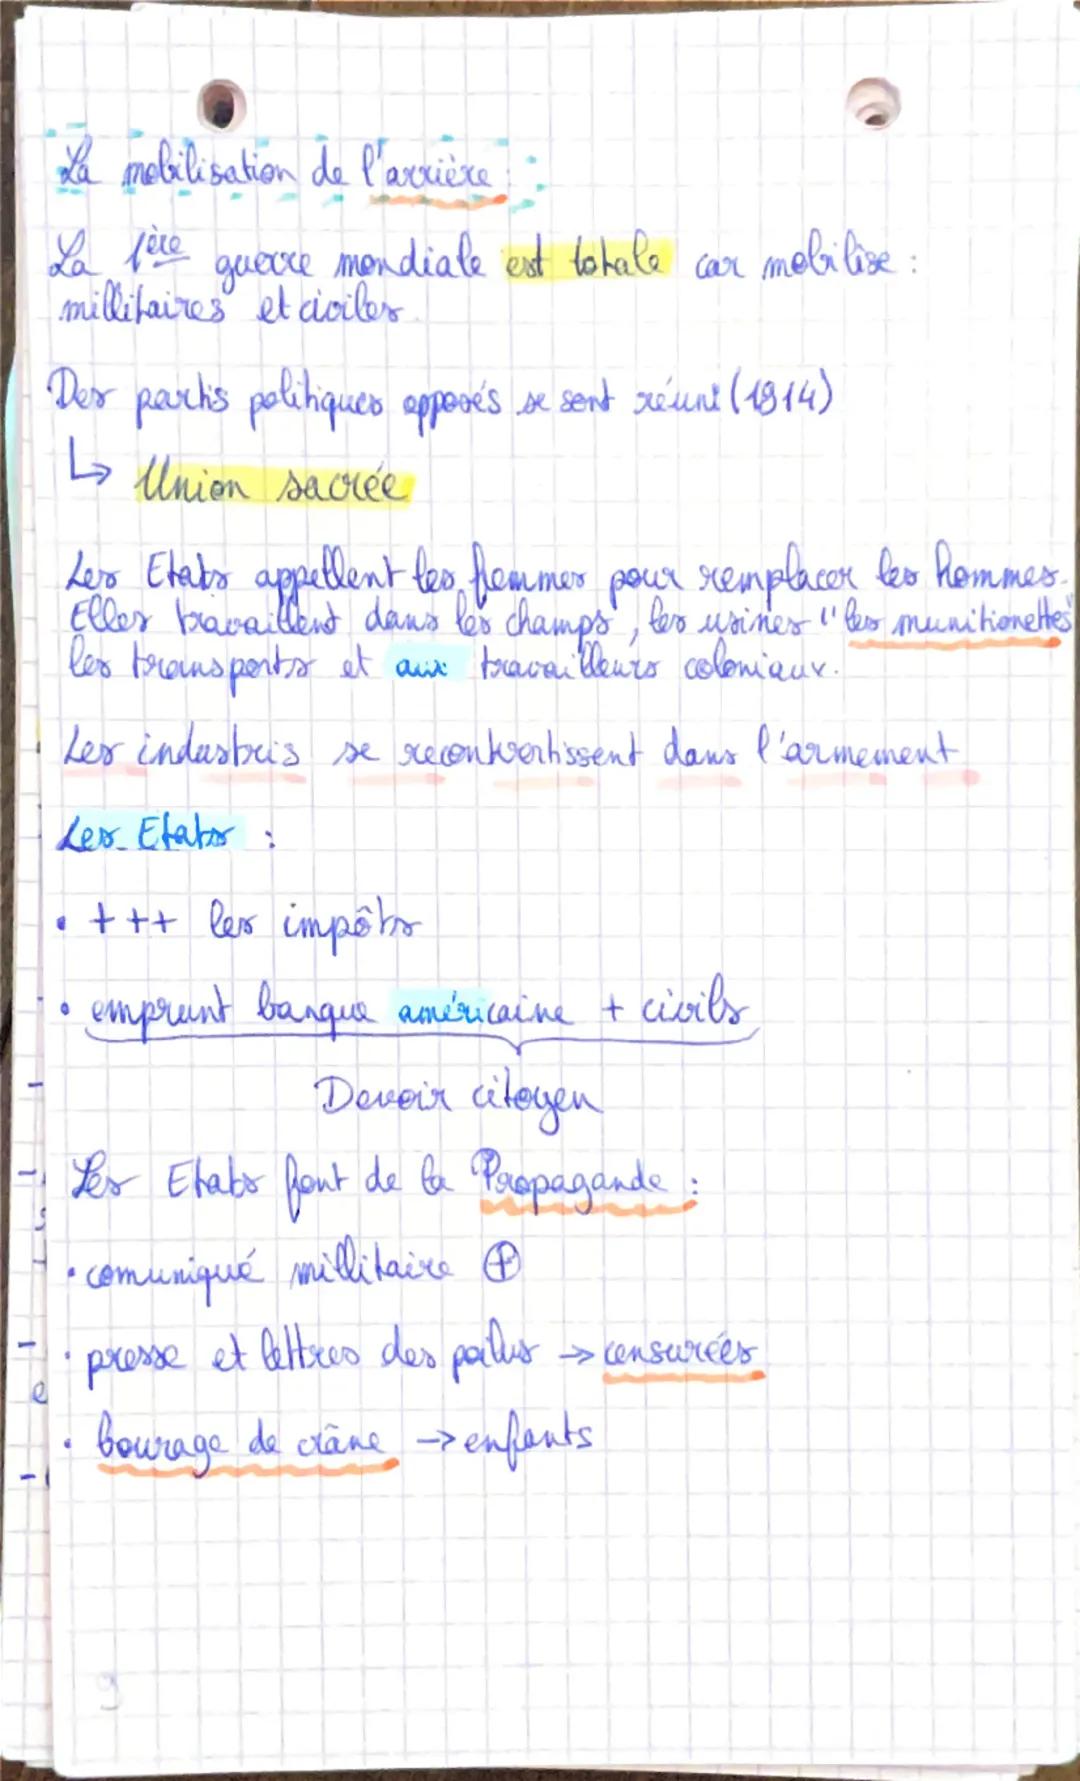 La mobilisation de l'arrière :
La 1ère guerre mondiale est totale car mobilise :
millitaires et civiles.
Des partis politiques opposés se sont réuni (1914)
↳ Union sacrée
Les Etats appellent les femmes pour remplacer les hommes.
Elles travaillent dans les champs, les usines "les munitionettes"
les transports et aux travailleurs coloniaux.
Les industris se recontvertissent dans l'armement
Les Etats :
• +++ les impôts
• emprunt banque américaine + civils
Devoir citoyen
Les Etats font de la Propagande :
• comuniqué millitaire ⊕
• presse et lettres des poilus → censurées
• bourage de crâne → enfants